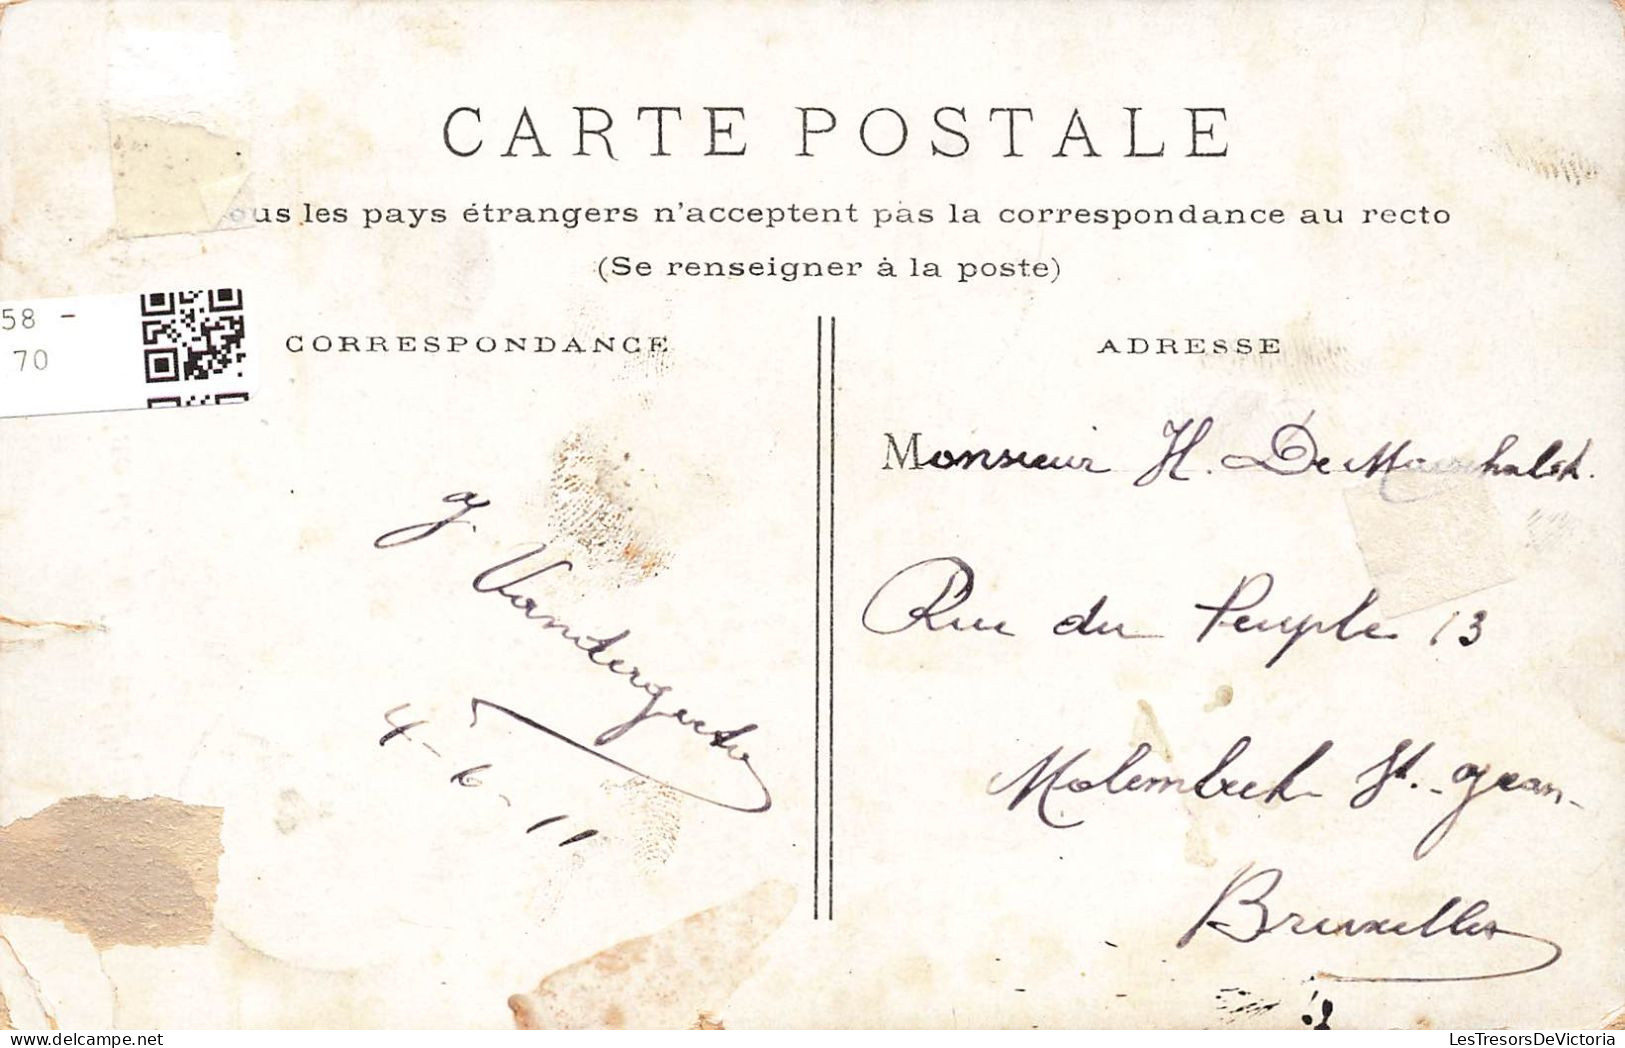 CARTE POSTALE
ous les pays étrangers n'acceptent pas la correspondance au recto
(Se renseigner à la poste)
58 -
70
CORRESPONDANCE
J. Vandergucht
4-6-11
ADRESSE
Monsieur H. De
Rue du Peuple 13
Molembeek St. Jean
Bruxelles
LesTresorsDeVictoria